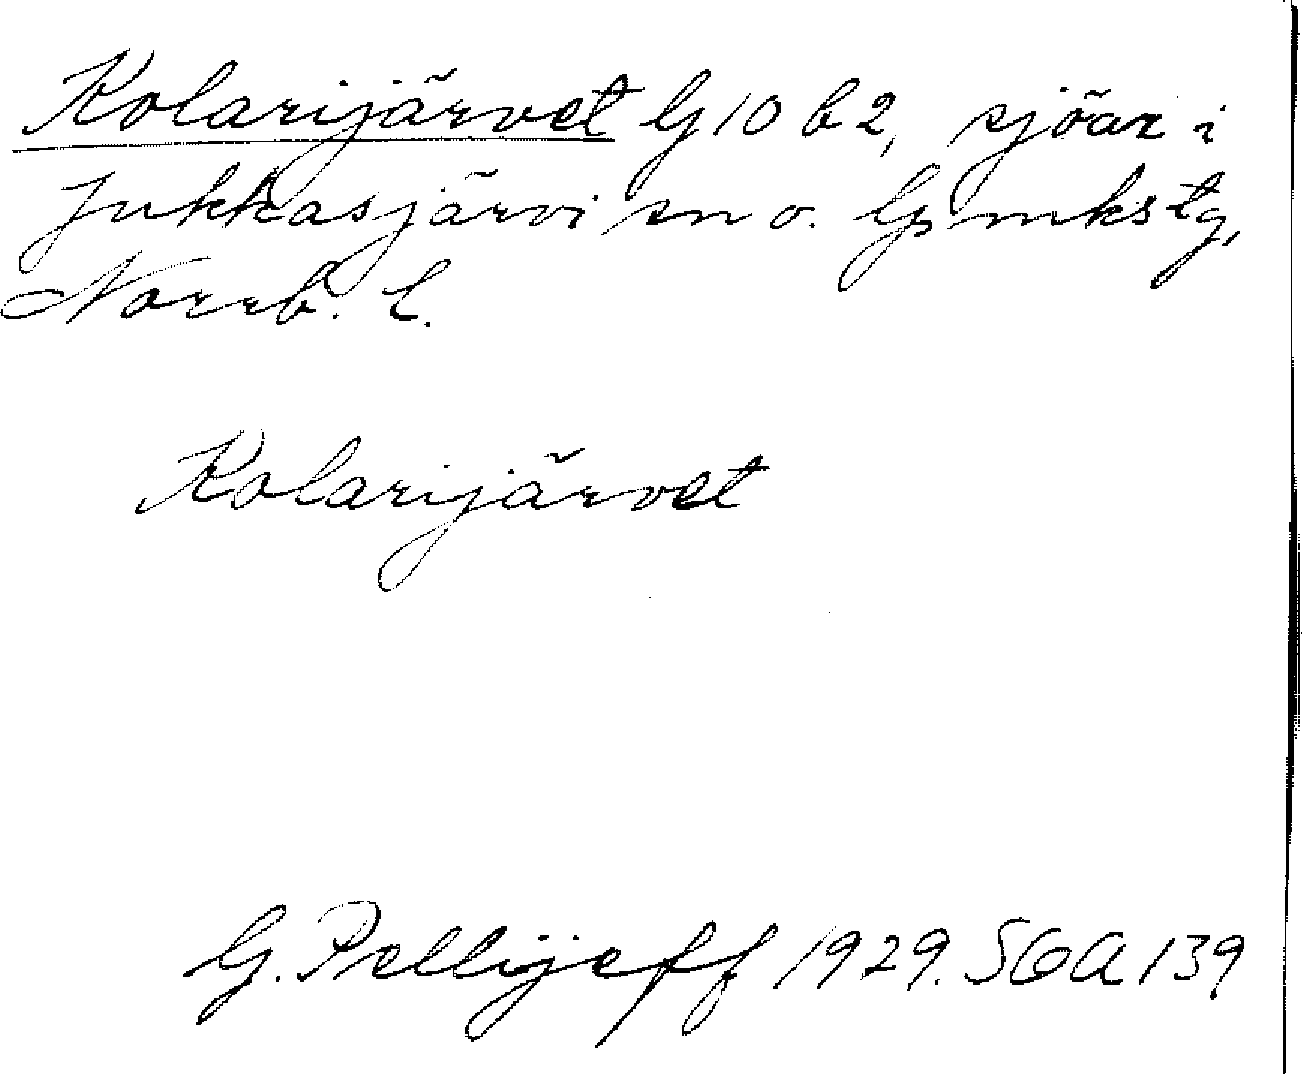 Kolarijärvet G 10 b 2, sjöar i
Jukkasjärvi sn o. Gs mkstg,
Norrb. l.
Kolarijärvet
G. Pellijeff 1929. SOA 139